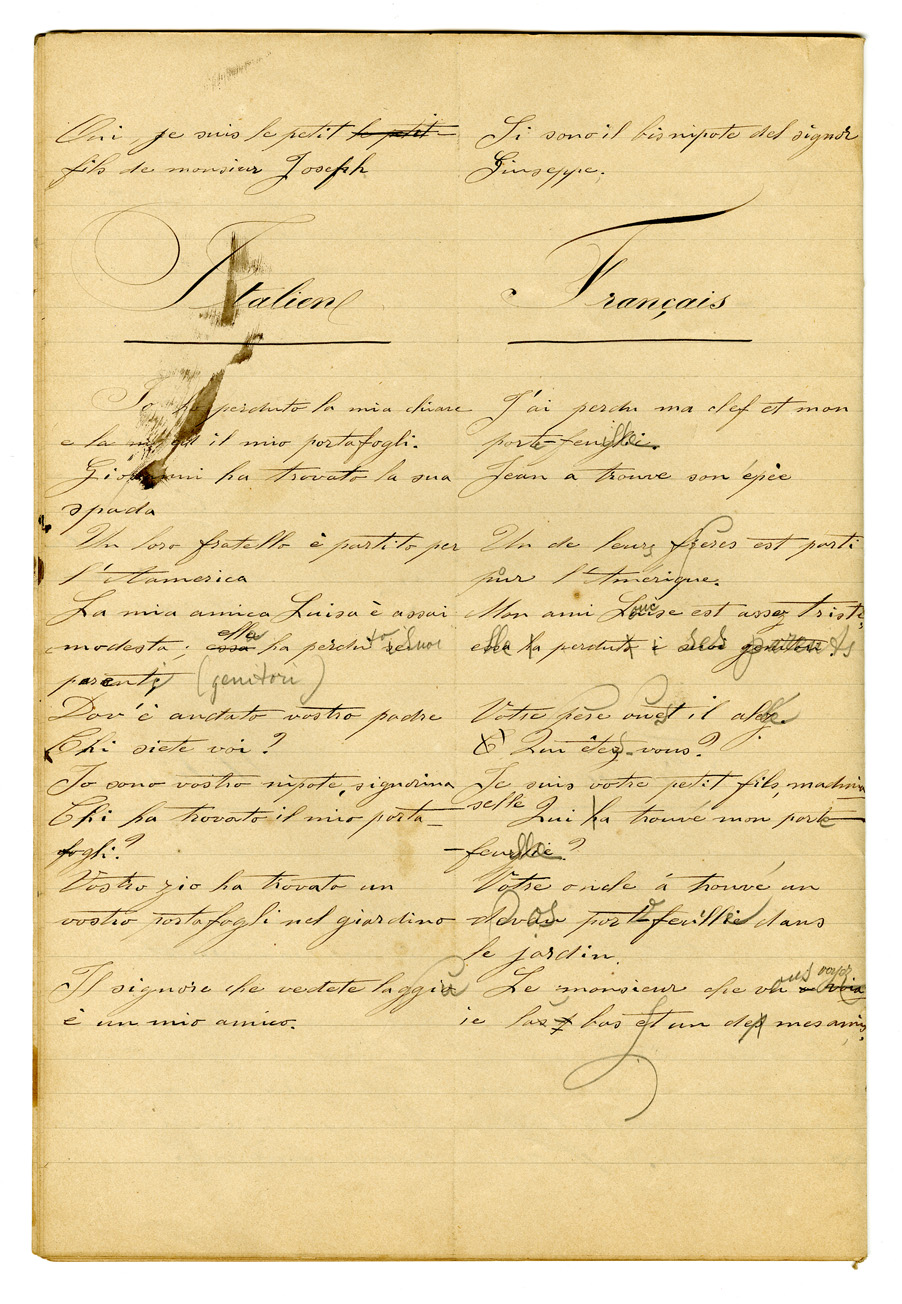 Oui, je suis le petit le ptit
fils de monsieur Joseph
Si sono il bisnipote del signor
Giuseppe.
Italien
Français
Io ho perduto la mia chiave
e la mia il mio portafogli.
Giovanni ha trovato la sua
spada
Un loro fratello è partito per
l'Aamerica
La mia amica Luisa è assai
modesta; essa ella ha perduto i suoi
parenti (genitori)
Dov'è andato vostro padre
Chi siete voi?
Io sono vostro nipote, signorina
Chi ha trovato il mio porta-
fogli?
Vostro zio ha trovato un
vostro portafogli nel giardino
Il signore che vedete laggiù
è un mio amico.
J'ai perdu ma clef et mon
porte-feuille.
Jean a trouvé son épée
Un de leurs frères est parti
pour l'Amérique.
Mon ami Louise est assez triste,
elle ha perduto i ses parents
Votre père ou est il allé
Qui êtes-vous?
Je suis votre petit fils, madmia
selle Qui ha trouvé mon porte
-feuille?
Votre oncle á trouvé un
de vos porte-feuille dans
le jardin.
Le monsieur che vous voyez
ie las bas et un des mes amis,